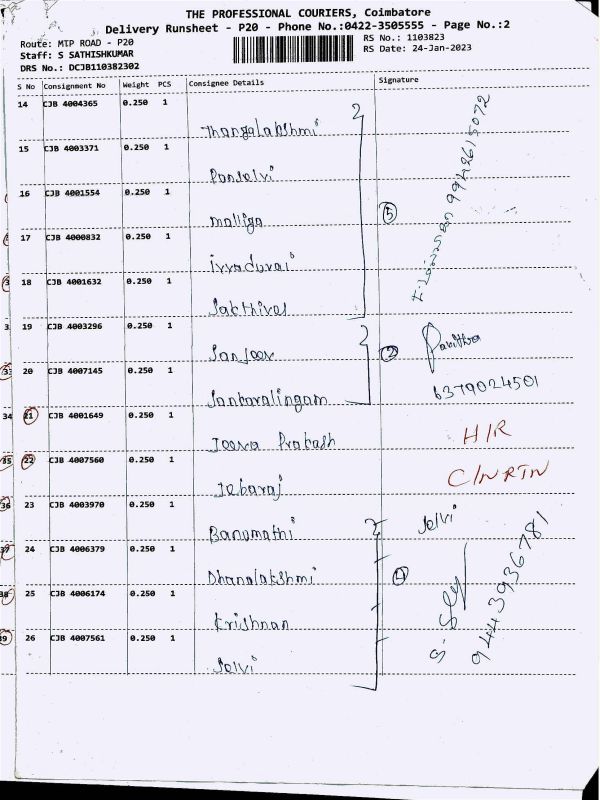 THE PROFESSIONAL COURIERS, Coimbatore
Delivery Runsheet - P20 - Phone No.:0422-3505555 - Page No.:2
Route: MTP ROAD - P20
Staff: S SATHISHKUMAR
DRS No.: DCJB110382302
RS No.: 1103823
RS Date: 24-Jan-2023
S No Consignment No Weight PCS Consignee Details Signature
14 CJB 4004365 0.250 1
Thangalakshmi
15 CJB 4003371 0.250 1
Ponselvi
16 CJB 4001554 0.250 1
Malliga
5
17 CJB 4000832 0.250 1
18 CJB 4001632 0.250 1
Sakthivel
19 CJB 4003296 0.250 1
Sanjeev
2
Pavithra
20 CJB 4007145 0.250 1
Sankaralingam
6379024501
34 21 CJB 4001649 0.250 1
Jeeva Prakash
H/R
35 22 CJB 4007560 0.250 1
Jebaraj
C/N RTN
36 23 CJB 4003970 0.250 1
Banumathi
Selvi
37 24 CJB 4006379 0.250 1
Dhanalakshmi
4
38 25 CJB 4006174 0.250 1
Krishnan
9443936781
39 26 CJB 4007561 0.250 1
Selvi